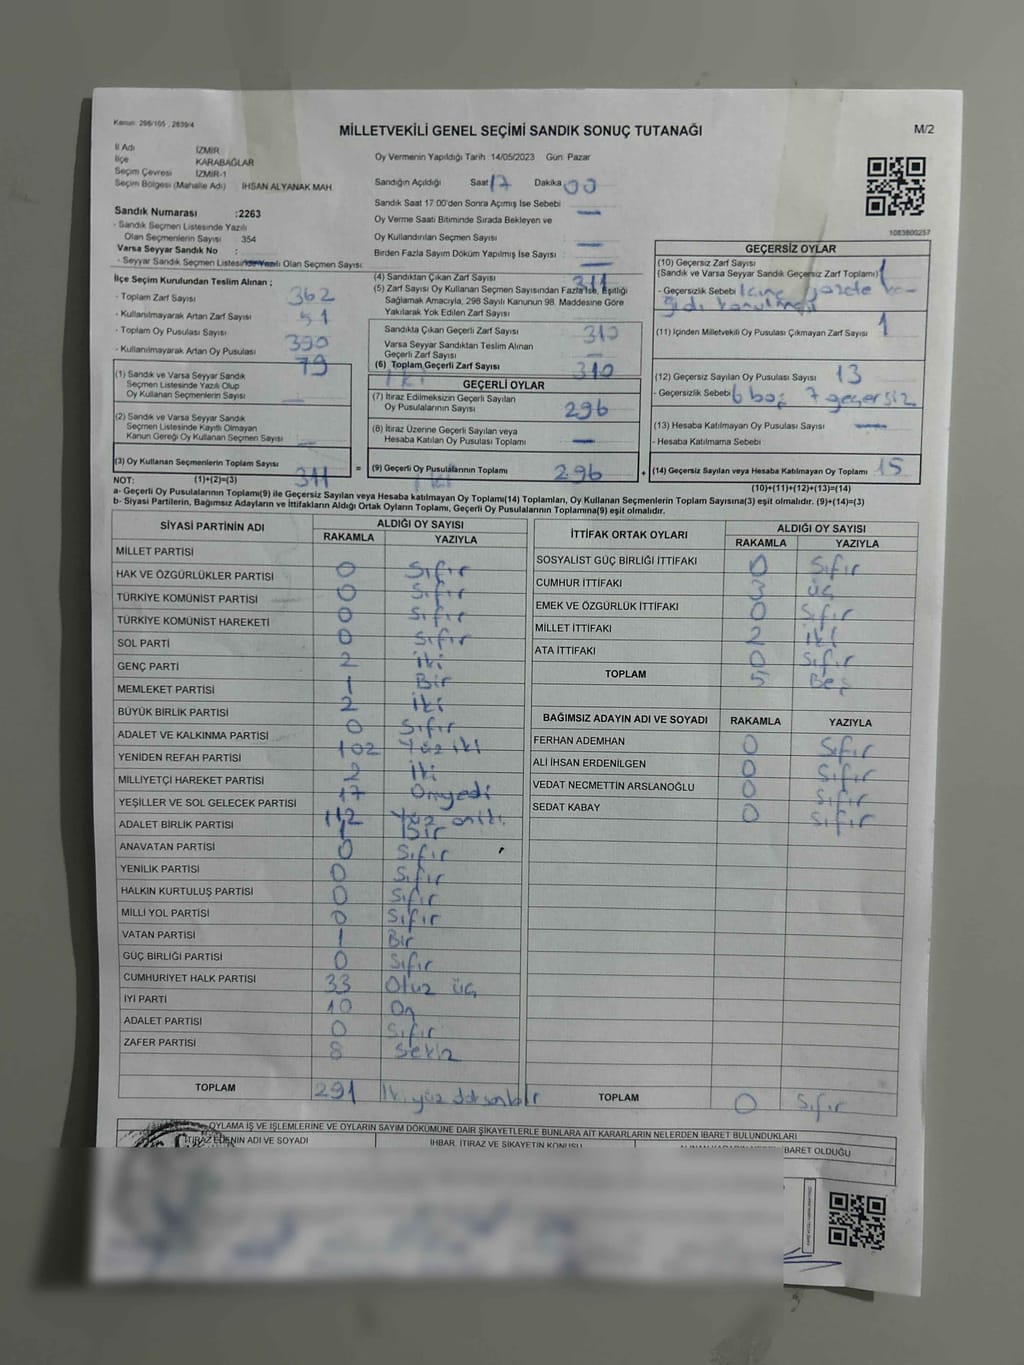 Kanun: 298/105 , 2839/4
MİLLETVEKİLİ GENEL SEÇİMİ SANDIK SONUÇ TUTANAĞI
M/2
İl Adı İZMİR
İlçe KARABAĞLAR
Seçim Çevresi İZMİR-1
Seçim Bölgesi (Mahalle Adı) İHSAN ALYANAK MAH.
Oy Vermenin Yapıldığı Tarih :14/05/2023 Gün: Pazar
Sandığın Açıldığı Saat 17 Dakika 00
Sandık Saat 17:00'den Sonra Açımış İse Sebebi —
Oy Verme Saati Bitiminde Sırada Bekleyen ve
Oy Kullandırılan Seçmen Sayısı —
Birden Fazla Sayım Döküm Yapılmış İse Sayısı : —
1083800257
Sandık Numarası :2263
- Sandık Seçmen Listesinde Yazılı
Olan Seçmenlerin Sayısı 354
Varsa Seyyar Sandık No :
- Seyyar Sandık Seçmen Listesinde Yazılı Olan Seçmen Sayısı:
İlçe Seçim Kurulundan Teslim Alınan ;
- Toplam Zarf Sayısı 362
- Kullanılmayarak Artan Zarf Sayısı 51
- Toplam Oy Pusulası Sayısı 390
- Kullanılmayarak Artan Oy Pusulası 79
(1) Sandık ve Varsa Seyyar Sandık
Seçmen Listesinde Yazılı Olup
Oy Kullanan Seçmenlerin Sayısı —
(2) Sandık ve Varsa Seyyar Sandık
Seçmen Listesinde Kayıtlı Olmayan
Kanun Gereği Oy Kullanan Seçmen Sayısı —
(3) Oy Kullanan Seçmenlerin Toplam Sayısı
(1)+(2)=(3) 311
(4) Sandıktan Çıkan Zarf Sayısı 311
(5) Zarf Sayısı Oy Kullanan Seçmen Sayısından Fazla İse, Eşitliği
Sağlamak Amacıyla, 298 Sayılı Kanunun 98. Maddesine Göre
Yakılarak Yok Edilen Zarf Sayısı
Sandıkta Çıkan Geçerli Zarf Sayısı 310
Varsa Seyyar Sandıktan Teslim Alınan
Geçerli Zarf Sayısı —
(6) Toplam Geçerli Zarf Sayısı 310
GEÇERLİ OYLAR
(7) İtiraz Edilmeksizin Geçerli Sayılan
Oy Pusulalarının Sayısı 296
(8) İtiraz Üzerine Geçerli Sayılan veya
Hesaba Katılan Oy Pusulası Toplamı —
= (9) Geçerli Oy Pusulalarının Toplamı 296 +
GEÇERSİZ OYLAR
(10) Geçersiz Zarf Sayısı
(Sandık ve Varsa Seyyar Sandık Geçersiz Zarf Toplamı) 1
- Geçersizlik Sebebi
(11) İçinden Milletvekili Oy Pusulası Çıkmayan Zarf Sayısı 1
(12) Geçersiz Sayılan Oy Pusulası Sayısı 13
- Geçersizlik Sebebi 6 boş 7 geçersiz
(13) Hesaba Katılmayan Oy Pusulası Sayısı —
- Hesaba Katılmama Sebebi
(14) Geçersiz Sayılan veya Hesaba Katılmayan Oy Toplamı 15
(10)+(11)+(12)+(13)=(14)
NOT:
a- Geçerli Oy Pusulalarının Toplamı(9) ile Geçersiz Sayılan veya Hesaba katılmayan Oy Toplamı(14) Toplamları, Oy Kullanan Seçmenlerin Toplam Sayısına(3) eşit olmalıdır. (9)+(14)=(3)
b- Siyasi Partilerin, Bağımsız Adayların ve İttifakların Aldığı Ortak Oyların Toplamı, Geçerli Oy Pusulalarının Toplamına(9) eşit olmalıdır.
SİYASİ PARTİNİN ADI ALDIĞI OY SAYISI
RAKAMLA YAZIYLA
MİLLET PARTİSİ 0 Sıfır
HAK VE ÖZGÜRLÜKLER PARTİSİ 0 Sıfır
TÜRKİYE KOMÜNİST PARTİSİ 0 Sıfır
TÜRKİYE KOMÜNİST HAREKETİ 0 Sıfır
SOL PARTİ 2 iki
GENÇ PARTİ 1 Bir
MEMLEKET PARTİSİ 2 iki
BÜYÜK BİRLİK PARTİSİ 0 Sıfır
ADALET VE KALKINMA PARTİSİ 102 Yüz iki
YENİDEN REFAH PARTİSİ 2 iki
MİLLİYETÇİ HAREKET PARTİSİ 17 Onyedi
YEŞİLLER VE SOL GELECEK PARTİSİ 112 Yüz oniki
ADALET BİRLİK PARTİSİ 1 Bir
ANAVATAN PARTİSİ 0 Sıfır
YENİLİK PARTİSİ 0 Sıfır
HALKIN KURTULUŞ PARTİSİ 0 Sıfır
MİLLİ YOL PARTİSİ 0 Sıfır
VATAN PARTİSİ 1 Bir
GÜÇ BİRLİĞİ PARTİSİ 0 Sıfır
CUMHURİYET HALK PARTİSİ 33 Otuz üç
İYİ PARTİ 10 On
ADALET PARTİSİ 0 Sıfır
ZAFER PARTİSİ 8 Sekiz
TOPLAM 291 İki yüz doksanbir
İTTİFAK ORTAK OYLARI ALDIĞI OY SAYISI
RAKAMLA YAZIYLA
SOSYALİST GÜÇ BİRLİĞİ İTTİFAKI 0 Sıfır
CUMHUR İTTİFAKI 3 üç
EMEK VE ÖZGÜRLÜK İTTİFAKI 0 Sıfır
MİLLET İTTİFAKI 2 iki
ATA İTTİFAKI 0 Sıfır
TOPLAM 5 Beş
BAĞIMSIZ ADAYIN ADI VE SOYADI RAKAMLA YAZIYLA
FERHAN ADEMHAN 0 Sıfır
ALİ İHSAN ERDENİLGEN 0 Sıfır
VEDAT NECMETTİN ARSLANOĞLU 0 Sıfır
SEDAT KABAY 0 Sıfır
TOPLAM 0 Sıfır
OYLAMA İŞ VE İŞLEMLERİNE VE OYLARIN SAYIM DÖKÜMÜNE DAİR ŞİKAYETLERLE BUNLARA AİT KARARLARIN NELERDEN İBARET BULUNDUKLARI
İTİRAZ EDENİN ADI VE SOYADI İHBAR, İTİRAZ VE ŞİKAYETİN KONUSU İBARET OLDUĞU